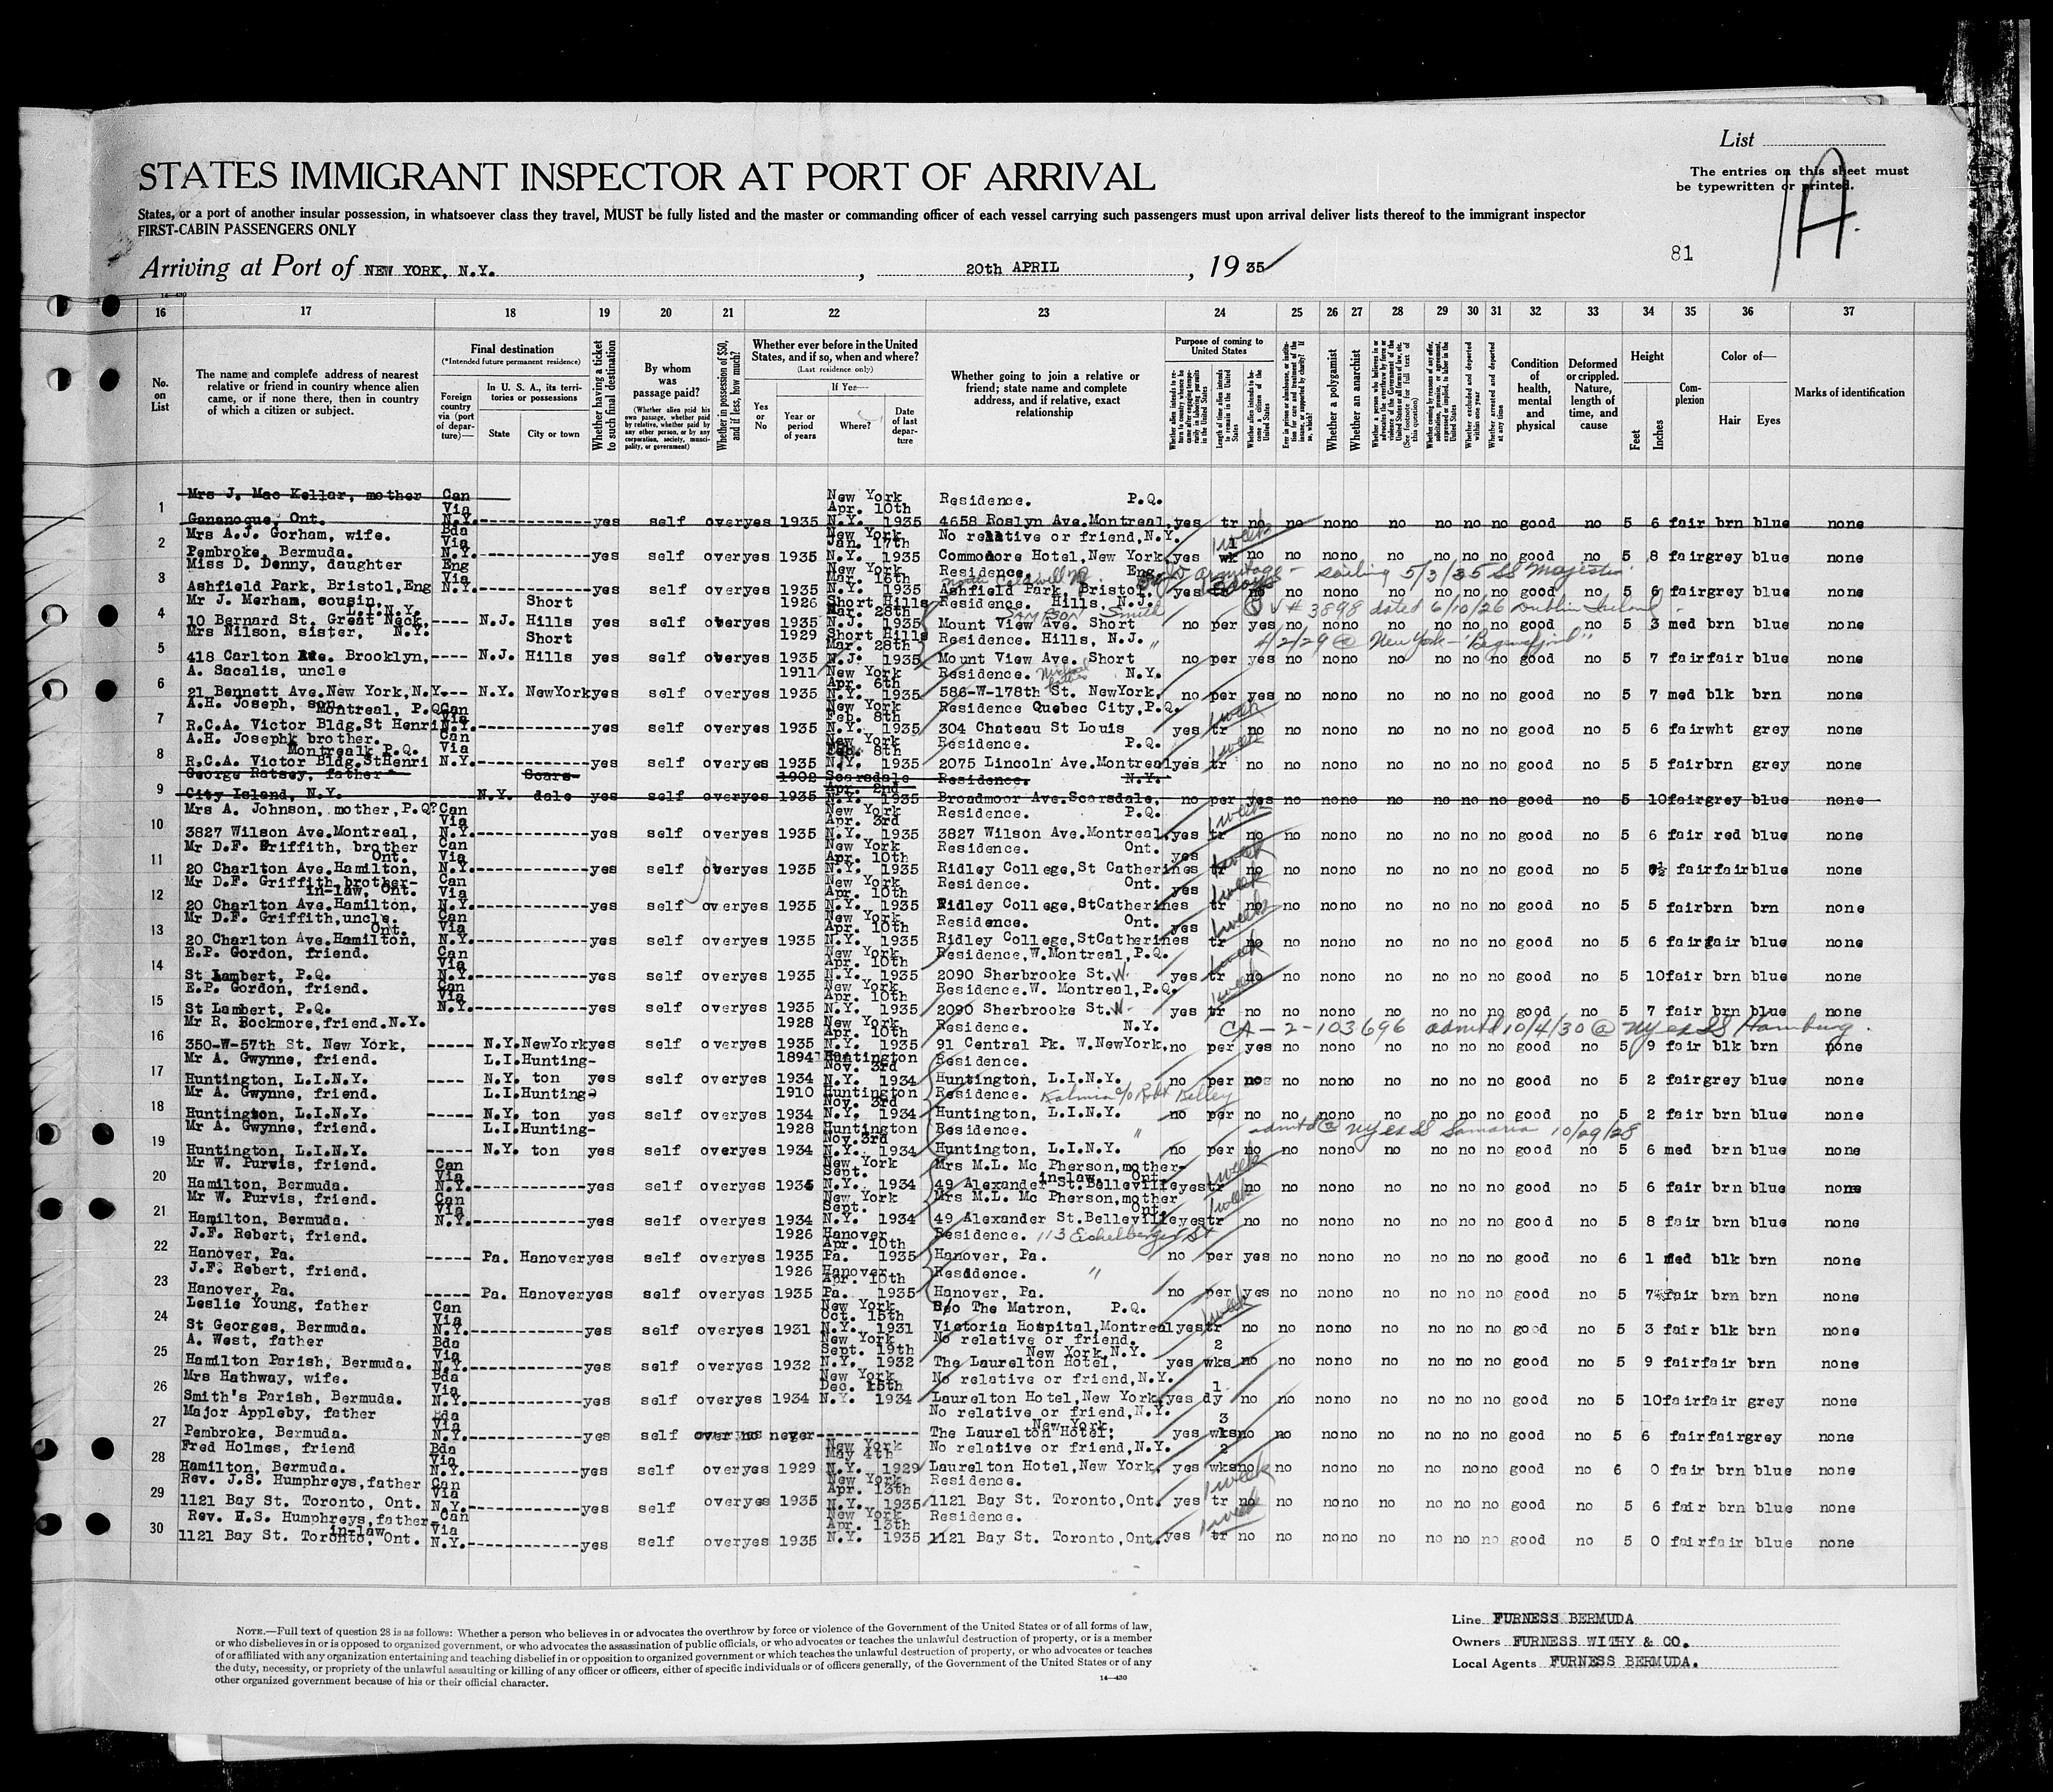 List
The entries on this sheet must
be typewritten or printed.
1A.
STATES IMMIGRANT INSPECTOR AT PORT OF ARRIVAL
States, or a port of another insular possession, in whatsoever class they travel, MUST be fully listed and the master or commanding officer of each vessel carrying such passengers must upon arrival deliver lists thereof to the immigrant inspector
FIRST-CABIN PASSENGERS ONLY
81
Arriving at Port of NEW YORK, N.Y. , 20th APRIL , 1935
14-430
16 17 18 19 20 21 22 23 24 25 26 27 28 29 30 31 32 33 34 35 36 37
No. on List
The name and complete address of nearest relative or friend in country whence alien came, or if none there, then in country of which a citizen or subject.
Final destination
(*Intended future permanent residence)
Foreign country via (port of departure)—
In U. S. A., its territories or possessions
State
City or town
Whether having a ticket to such final destination
By whom was passage paid?
(Whether alien paid his own passage, whether paid by relative, whether paid by any other person, or by any corporation, society, municipality, or government)
Whether in possession of $50, and if less, how much?
Whether ever before in the United States, and if so, when and where?
(Last residence only)
Yes or No
If Yes—
Year or period of years
Where?
Date of last departure
Whether going to join a relative or friend; state name and complete address, and if relative, exact relationship
Purpose of coming to United States
Length of time alien intends to remain in the United States
Whether alien intends to become a citizen of the United States
Whether a polygamist
Whether an anarchist
Whether excluded and deported within one year
Whether arrested and deported at any time
Condition of health, mental and physical
Deformed or crippled. Nature, length of time, and cause
Height
Feet
Inches
Complexion
Color of—
Hair
Eyes
Marks of identification
1 Mrs J. Mac Kellar, mother Can New York Residence. P.Q.
Via Apr. 10th
Gananoque, Ont. N.Y. yes self over yes 1935 N.Y. 1935 4658 Roslyn Ave.Montreal, yes tr no no no no no no no no good no 5 6 fair brn blue none
2 Mrs A.J. Gorham, wife. Bda New York No relative or friend,N.Y. 1 week
Via Jan. 17th 1
Pembroke, Bermuda. N.Y. yes self over yes 1935 N.Y. 1935 Commodore Hotel,New York, yes wk no no no no no no no no good no 5 8 fair grey blue none
3 Miss D. Denny, daughter Eng New York Residence. Eng
Via Mar. 16th North Caldwell NJ Armitage - sailing 5/3/35 SS Majestic
Ashfield Park, Bristol,Eng N.Y. yes self over yes 1935 N.Y. 1935 Ashfield Park, Bristol, yes no no no no no no no no good no 5 6 fair grey blue none
4 Mr J. Merham, cousin, Short 1926 Short Hills Residence. Hills, N.J. # 3898 dated 6/10/26 Dublin Ireland
L.I.N.Y. Mar. 28th Sampson Smith
10 Bernard St. Great Neck, N.J. Hills yes self over yes 1935 N.J. 1935 Mount View Ave. Short no per yes no no no no no no no good no 5 3 med brn blue none
5 Mrs Nilson, sister, N.Y. Short 1929 Short Hills Residence. Hills, N.J. " 4/2/29 @ New York - "Bergensfjord"
Mar. 28th
418 Carlton Ave. Brooklyn, N.J. Hills yes self over yes 1935 N.J. 1935 Mount View Ave. Short no per yes no no no no no no no good no 5 7 fair fair blue none
6 A. Sacalis, uncle 1911 New York Residence. N.Y.
Apr. 6th
21 Bennett Ave.New York,N.Y. N.Y. NewYork yes self over yes 1935 N.Y. 1935 586-W-178th St. NewYork, no per yes no no no no no no no good no 5 7 med blk brn none
7 A.H. Joseph, son. Can New York Residence Quebec City,P.Q.
Montreal, P.Q. Via Feb. 8th 1 week
R.C.A. Victor Bldg.St Henri N.Y. yes self over yes 1935 N.Y. 1935 304 Chateau St Louis yes tr no no no no no no no no good no 5 6 fair wht grey none
8 A.H. Josephk brother. Can New York Residence. P.Q.
Montrealk P.Q. Via Feb. 8th 1 week
R.C.A. Victor Bldg.StHenri N.Y. yes self over yes 1935 N.Y. 1935 2075 Lincoln Ave.Montreal yes tr no no no no no no no no good no 5 5 fair brn grey none
9 George Ratsey, father Scars- 1902 Scarsdale Residence. N.Y.
Apr. 2nd
City Island, N.Y. N.Y. dale yes self over yes 1935 N.Y. 1935 Broadmoor Ave.Scarsdale, no per yes no no no no no no no good no 5 10 fair grey blue none
10 Mrs A. Johnson, mother,P.Q? Can New York Residence. P.Q.
Via Apr. 3rd 1 week
3827 Wilson Ave.Montreal, N.Y. yes self over yes 1935 N.Y. 1935 3827 Wilson Ave.Montreal, yes tr no no no no no no no no good no 5 6 fair red blue none
11 Mr D.F. Griffith, brother Can New York Residence. Ont.
Ont. Via Apr. 10th yes 1 week
20 Charlton Ave.Hamilton, N.Y. yes self over yes 1935 N.Y. 1935 Ridley College,St Catherines tr no no no no no no no no good no 5 fair fair blue none
12 Mr D.F. Griffith brother- Can New York Residence. Ont.
in-law, Ont. Via Apr. 10th yes 1 week
20 Charlton Ave.Hamilton, N.Y. yes self over yes 1935 N.Y. 1935 Ridley College,StCatherines tr no no no no no no no no good no 5 5 fair brn brn none
13 Mr D.F. Griffith,uncle. Can New York Residence. Ont.
Ont. Via Apr. 10th yes 1 week
20 Charlton Ave.Hamilton, N.Y. yes self over yes 1935 N.Y. 1935 Ridley College,StCatherines tr no no no no no no no no good no 5 6 fair fair blue none
14 E.P. Gordon, friend. Can New York Residence,W.Montreal,P.Q.
Via Apr. 10th 1 week
St Lambert, P.Q. N.Y. yes self over yes 1935 N.Y. 1935 2090 Sherbrooke St.W. yes tr no no no no no no no no good no 5 10 fair brn blue none
15 E.P. Gordon, friend. Can New York Residence.W. Montreal,P.Q.
Via Apr. 10th 1 week
St Lambert, P.Q. N.Y. yes self over yes 1935 N.Y. 1935 2090 Sherbrooke St.W. yes tr no no no no no no no no good no 5 7 fair brn blue none
16 Mr R. Rockmore,friend.N.Y. 1928 New York Residence. N.Y. CA - 2 - 103696 admtd 10/4/30 @ NY ex SS Hamburg.
Apr. 10th
350-W-57th St. New York, N.Y. NewYork yes self over yes 1935 N.Y. 1935 91 Central Pk. W.NewYork, no per yes no no no no no no no good no 5 9 fair blk brn none
17 Mr A. Gwynne, friend. L.I. Hunting- 1894 Huntington Residence.
Nov. 3rd
Huntington, L.I.N.Y. N.Y. ton yes self over yes 1934 N.Y. 1934 Huntington, L.I.N.Y. no per no no no no no no no no good no 5 2 fair grey blue none
18 Mr A. Gwynne, friend. L.I. Hunting- 1910 Huntington Residence. Kalmia c/o Robt Kelley
Nov. 3rd
Huntington, L.I.N.Y. N.Y. ton yes self over yes 1934 N.Y. 1934 Huntington, L.I.N.Y. no per no no no no no no no no good no 5 2 fair brn blue none
19 Mr A. Gwynne, friend. L.I. Hunting- 1928 Huntington Residence. " admtd @ NY ex SS Samaria 10/29/28
Nov.3rd
Huntington, L.I.N.Y. N.Y. ton yes self over yes 1934 N.Y. 1934 Huntington, L.I.N.Y. no per no no no no no no no no good no 5 6 med brn blue none
20 Mr W. Purvis, friend. Can New York Mrs M.L. Mc Pherson,mother-
Via Sept. in-law. Ont. 1 week
Hamilton, Bermuda. N.Y. yes self over yes 1934 N.Y. 1934 49 Alexander St.Belleville yes tr no no no no no no no no good no 5 6 fair brn blue none
21 Mr W. Purvis, friend. Can New York Mrs M.L. Mc Pherson,mother
Via Sept. Ont. 1 week
Hamilton, Bermuda. N.Y. yes self over yes 1934 N.Y. 1934 49 Alexander St.Belleville yes tr no no no no no no no no good no 5 8 fair brn blue none
22 J.F. Rebert, friend. 1926 Hanover Residence. 113 Eichelberger St
Apr. 10th
Hanover, Pa. Pa. Hanover yes self over yes 1935 Pa. 1935 Hanover, Pa. no per yes no no no no no no no good no 6 1 med blk brn none
23 J.F. Rebert, friend. 1926 Hanover Residence. "
Apr. 10th
Hanover, Pa. Pa. Hanover yes self over yes 1935 Pa. 1935 Hanover, Pa. no per yes no no no no no no no good no 5 7 fair brn brn none
24 Leslie Young, father Can New York c/o The Matron, P.Q.
Via Oct. 15th 1 week
St Georges, Bermuda. N.Y. yes self over yes 1931 N.Y. 1931 Victoria Hospital,Montreal yes tr no no no no no no no no good no 5 3 fair blk brn none
25 A. West, father Bda New York No relative or friend.
Via Sept. 19th New York,N.Y. 2
Hamilton Parish, Bermuda. N.Y. yes self over yes 1932 N.Y. 1932 The Laurelton Hotel, yes wks no no no no no no no no good no 5 9 fair fair brn none
26 Mrs Hathway, wife. Bda New York No relative or friend,N.Y.
Via Dec. 15th 1
Smith's Parish, Bermuda. N.Y. yes self over yes 1934 N.Y. 1934 Laurelton Hotel,New York, yes dy no no no no no no no no good no 5 10 fair fair grey none
27 Major Appleby, father Bda No relative or friend,N.Y.
Via New York. 3
Pembroke, Bermuda. N.Y. yes self over no never The Laurelton Hotel, yes wks no no no no no no no no good no 5 6 fair fair grey none
28 Fred Holmes, friend Bda New York No relative or friend,N.Y.
Via May 4th 2
Hamilton, Bermuda. N.Y. yes self over yes 1929 N.Y. 1929 Laurelton Hotel,New York, yes wks no no no no no no no no good no 6 0 fair brn blue none
29 Rev. J.S. Humphreys,father Can New York Residence.
Via Apr. 13th 1 week
1121 Bay St. Toronto, Ont. N.Y. yes self over yes 1935 N.Y. 1935 1121 Bay St. Toronto,Ont. yes tr no no no no no no no no good no 5 6 fair brn blue none
30 Rev. H.S. Humphreys,father- Can New York Residence.
in-law Via Apr. 13th 1 week
1121 Bay St. Toronto, Ont. N.Y. yes self over yes 1935 N.Y. 1935 1121 Bay St. Toronto,Ont. yes tr no no no no no no no no good no 5 0 fair fair blue none
NOTE.—Full text of question 28 is as follows: Whether a person who believes in or advocates the overthrow by force or violence of the Government of the United States or of all forms of law,
or who disbelieves in or is opposed to organized government, or who advocates the assassination of public officials, or who advocates or teaches the unlawful destruction of property, or is a member
of or affiliated with any organization entertaining and teaching disbelief in or opposition to organized government or which teaches the unlawful destruction of property, or who advocates or teaches
the duty, necessity, or propriety of the unlawful assaulting or killing of any officer or officers, either of specific individuals or of officers generally, of the Government of the United States or of any
other organized government because of his or their official character.
14—430
Line FURNESS BERMUDA
Owners FURNESS WITHY & CO.
Local Agents FURNESS BERMUDA.